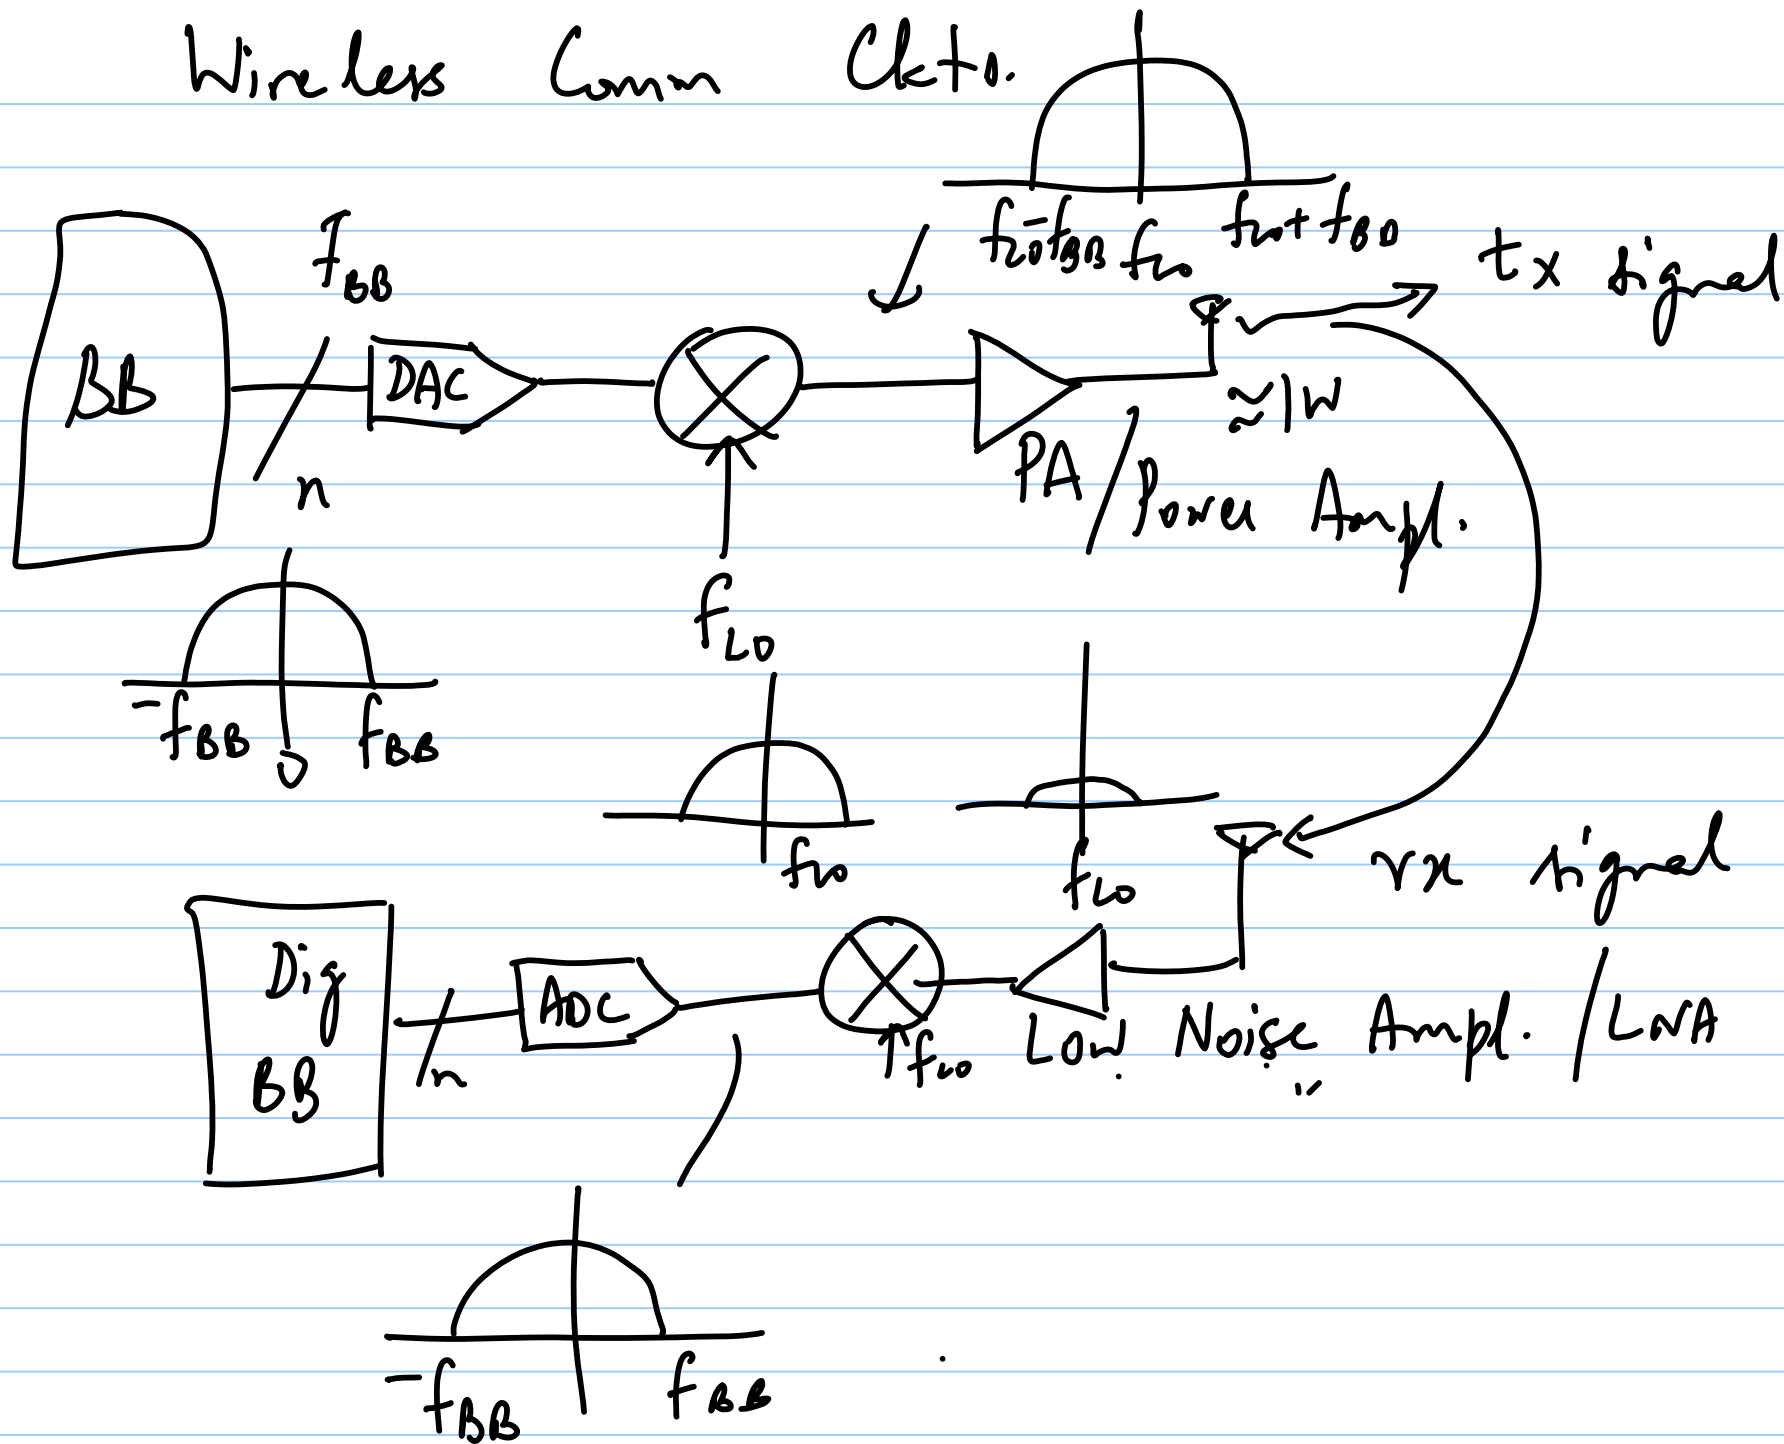 Wireless Comm Ckts.
f_LO - f_BB f_LO f_LO + f_BB
f_BB
tx signal
BB
DAC
≈ 1W
n
PA / Power Ampl.
f_LO
-f_BB 0 f_BB
f_LO
f_LO
rx signal
Dig
BB
n
ADC
f_LO
Low Noise Ampl. / LNA
-f_BB f_BB